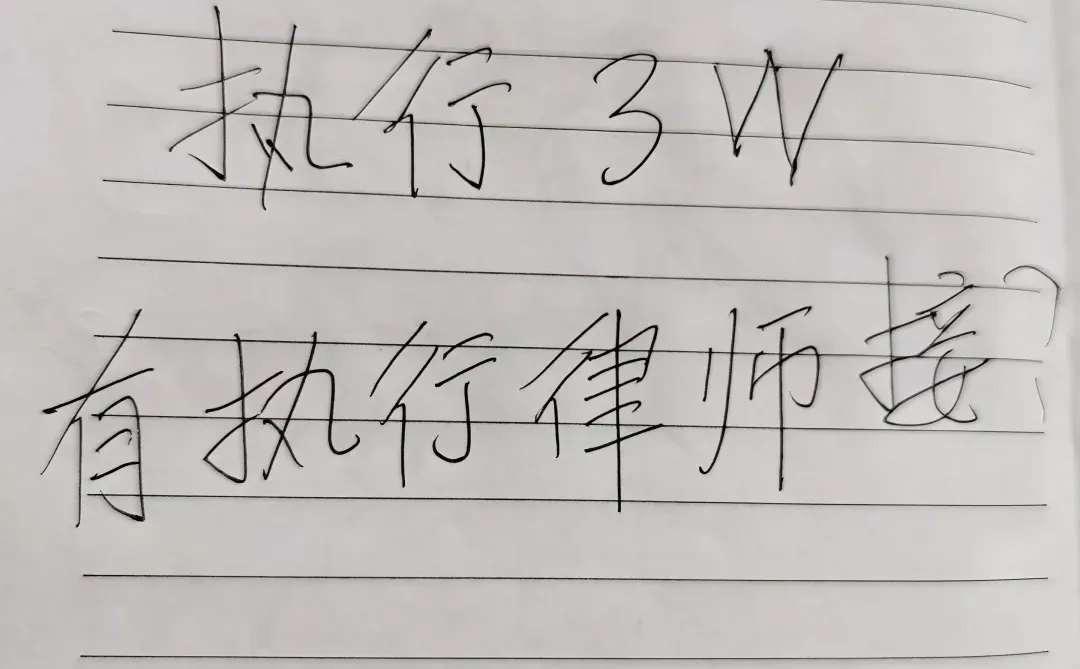 执行3W
有执行律师接?